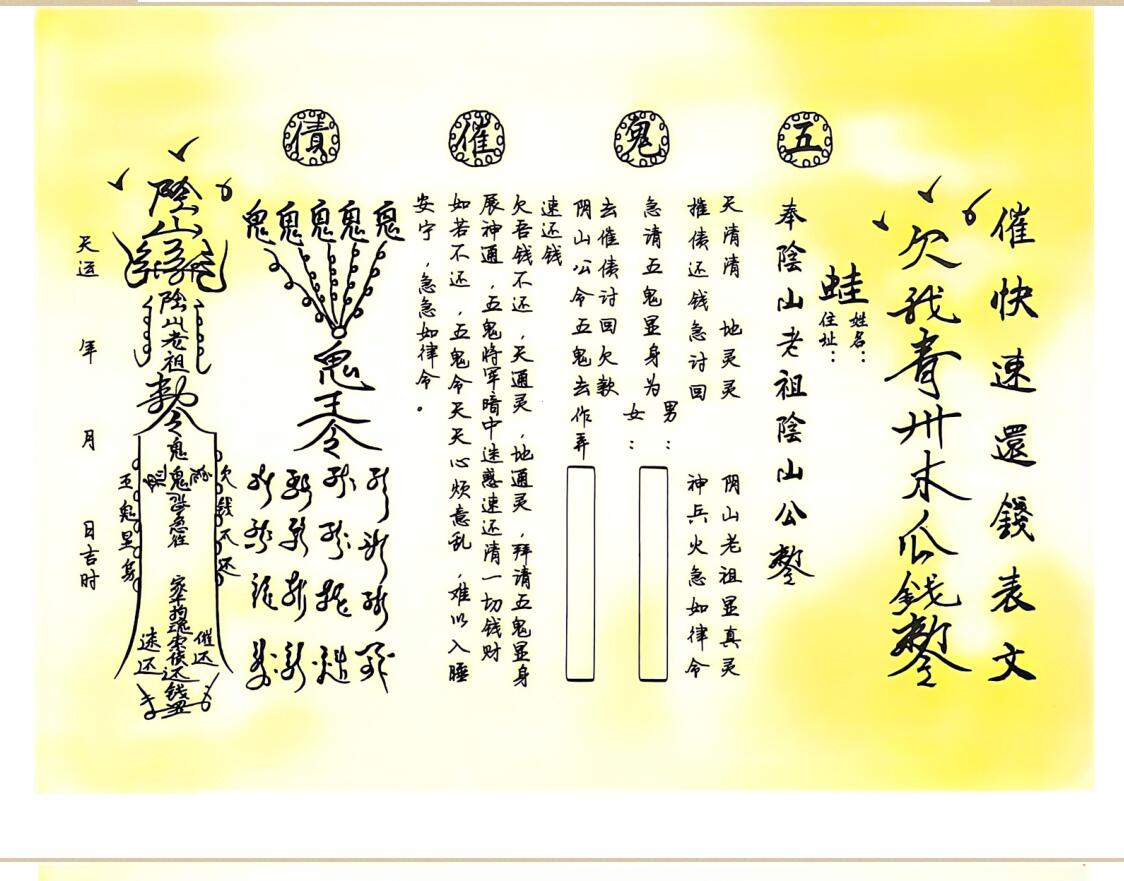 五鬼催債
催快速還錢表文
欠我青卅木瓜钱
蛙
姓名：
住址：
奉陰山老祖陰山公
天清清 地灵灵 阴山老祖显真灵
摧债还钱急讨回 神兵火急如律令
男：
女：
急请五鬼显身为
去催债讨回欠款
阴山公令五鬼去作弄
速还钱
欠吾钱不还，天通灵，地通灵，拜请五鬼显身
展神通，五鬼将军暗中迷惑速还清一切钱财
如若不还，五鬼令天天心烦意乱，难以入睡
安宁，急急如律令。
鬼鬼鬼鬼鬼
鬼王令
陰山
陰山老祖
勅令
鬼
欠钱不还
五鬼显身
催还
速还
天运 年 月 日吉时